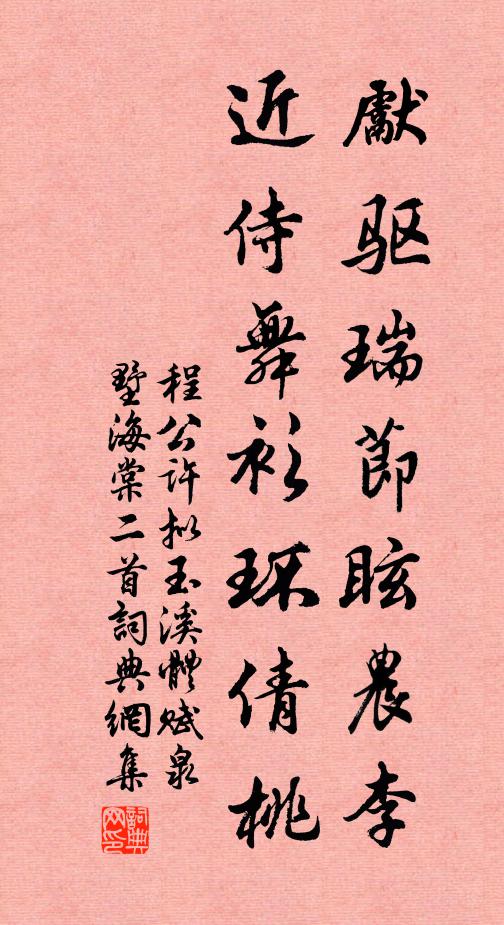 獻驱瑞節眩農李
近侍舞衫环倩桃
程公許拟玉溪體赋泉
墅海棠二首詞典網集
詞典网印